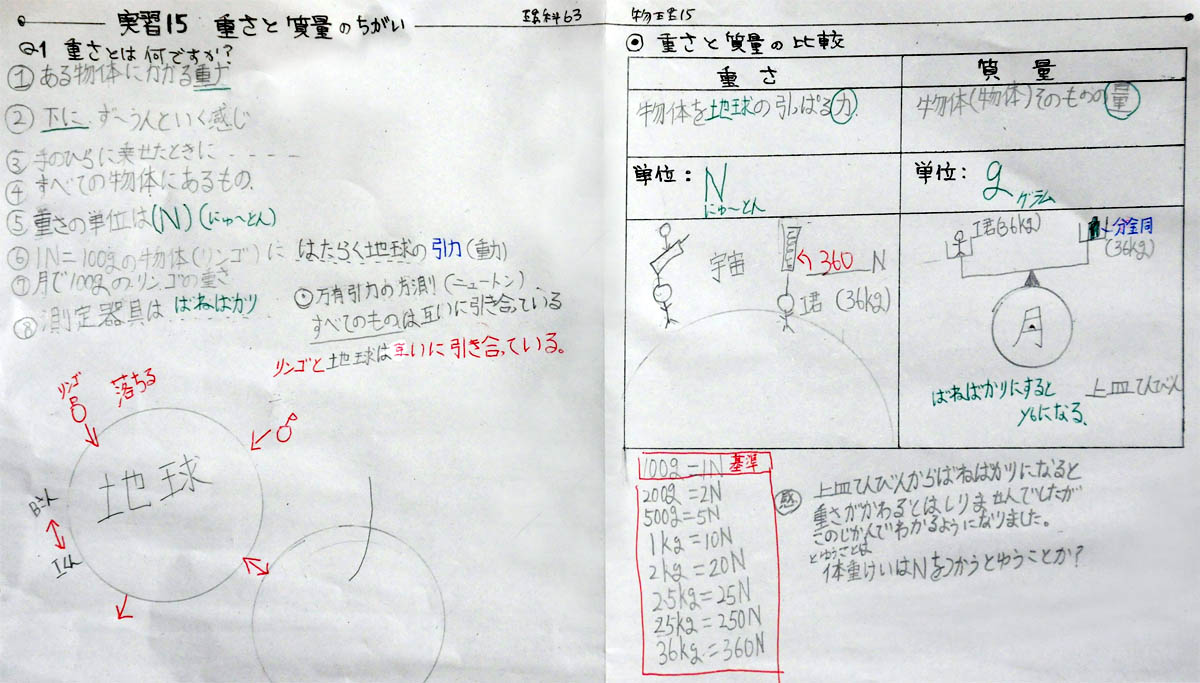 実習15 重さと質量のちがい
理科63 物理15
Q1 重さとは何ですか?
① ある物体にかかる重力
② 下にず〜うんといく感じ
③ 手のひらに乗せたときに
④ すべての物体にあるもの.
⑤ 重さの単位は(N)(にゅ〜とん)
⑥ 1N=100gの物体(リンゴ)にはたらく地球の引力(重力)
⑦ 月で100gのリンゴの重さ
⑧ 測定器具は ばねばかり
⊙ 万有引力の方測(ニュートン)
すべてのものは互いに引き合っている
リンゴと地球は互いに引き合っている。
リンゴ
落ちる
地球
◎ 重さと質量の比較
重さ
質量
物体を地球の引っぱる力
物体(物体)そのものの量
単位: N
にゅ〜とん
単位: g
グラム
宇宙
360 N
I君(36kg)
I君(36kg)
分全同
(36kg)
月
ばねばかりにすると
1/6になる.
上皿てんびん
100g=1N 基準
200g=2N
500g=5N
1kg=10N
2kg=20N
2.5kg=25N
25kg=250N
36kg=360N
感 上皿てんびんからばねばかりになると
重さがかわるとはしりませんでしたが
このじかんでわかるようになりました。
とゆうことは
体重けいはNをつかうとゆうことか?